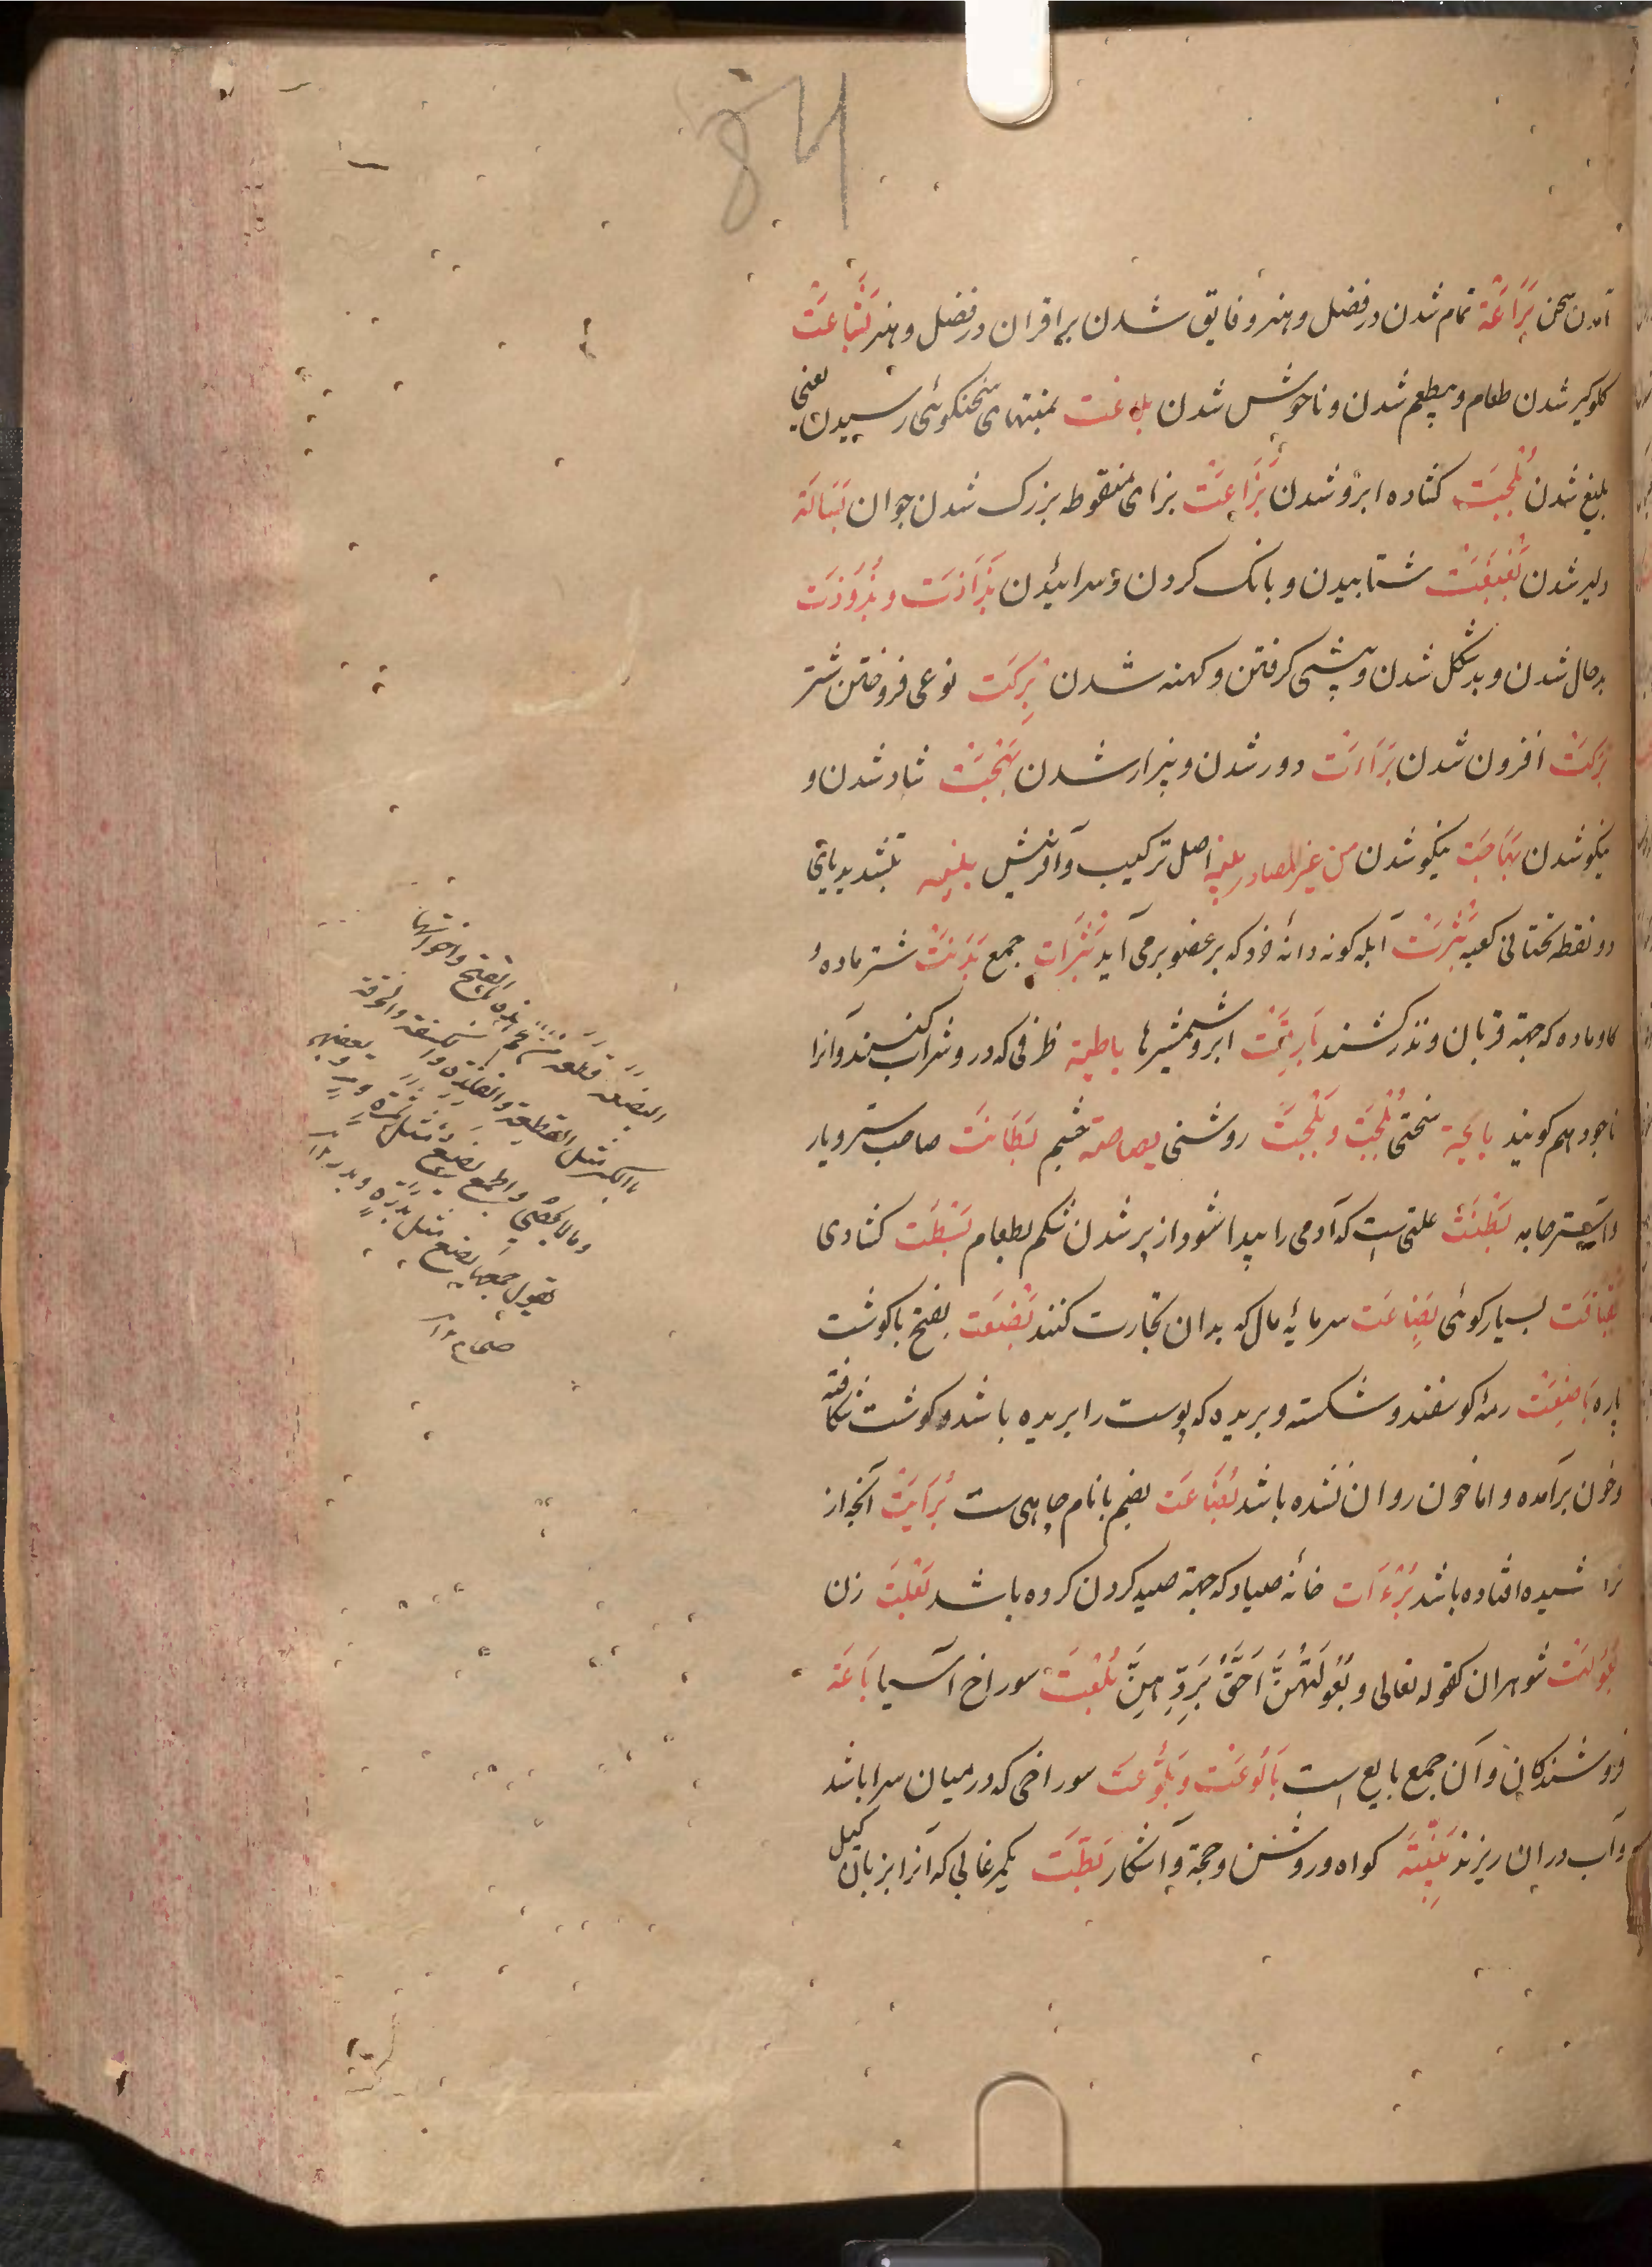 84
آمدن سخن بَرَاعَة تمام شدن در فضل و هنر و فایق شدن بر اقران در فضل و هنر بَشَاعَت
کلوکیر شدن طعام و بیطعم شدن و ناخوش شدن بلاغت بمنتهای سخنکوئی رسیدن یعنی
بلیغ شدن بُلْجَت کشاده ابرو شدن بَزَاعَت بزای منقوطه بزرک شدن جوان بَسَالَة
دلیر شدن بَغْبَغَت شتابیدن و بانک کردن و سرائیدن بَذَاذَت و بُذُوذَت
بدحال شدن و بدشکل شدن و پیشی کرفتن و کهنه شدن بِرکَت نوعی فروختن شتر
بَرَکَت افزون شدن بَرَاءَت دور شدن و بیزار شدن بَهْجَت شاد شدن و
نیکو شدن بَهَاجَت نیکو شدن من غیر المصادر بنیه اصل ترکیب و آفرینش بنیه بتشدید یای
دو نقطه تحتانی کعبه بَثْرَت آبله کونه دانه خرد که بر عضو برمی آید بَثَرَات جمع بَدَنَت شتر ماده
کاو ماده که جهة قربان و نذر کشند بَارِقَت ابر و شمشیرها باطیة ظرفی که درو شراب کنند و آنرا
ناجود هم کویند بایجة سختی بُلْجَت و بَلْجَت روشنی بصاصة چشم بِطَانَت صاحب ستر و یار
و آستر جامه بِطْنَت علتی ست که آدمی را پیدا شود از پر شدن شکم بطعام بَسْطَت کشادی
بسیار کوئی بِضَاعَت سرمایه مال که بدان تجارت کنند بَضْعَت بفتح با کوشت
پاره بَاضِعَت رمه کوسفند و شکسته و بریده که پوست را بریده باشد و کوشت شکافته
و خون برآمده و اما خون روان نشده باشد بُضَاعَت بضم با نام چاهی ست بُرَایَت آنچه از
تراشیده افتاده باشد بُرْءَات خانه صیاد که جهة صید کردن کرده باشد بَعْلَت زن
بُعُولَت شوهران کقوله تعالی وَبُعُولَتُهُنَّ اَحَقُّ بِرَدِّهِنَّ بُلْعَت سوراخ آسیا بَاعَة
فروشندکان و آن جمع بایع است بَالُوعَت و بَلُّوعَت سوراخی که در میان سرا باشد
و آب دران ریزند بَیِّنَة کواه و روشن و حجة و آشکار بَطَّت یک مرغابی که آنرا بزبان کیل
البضعة قطعة من اللحم هذه بالفتح واخواتها
بالکسر مثل القطعة والفلذة والکسفة والخرقة
وما لا یحصی والجمع بضع مثل تمرة وتمر وبعضهم
یقول جمعها بضع مثل بدرة وبدر ۱۲
صحاح ۱۲